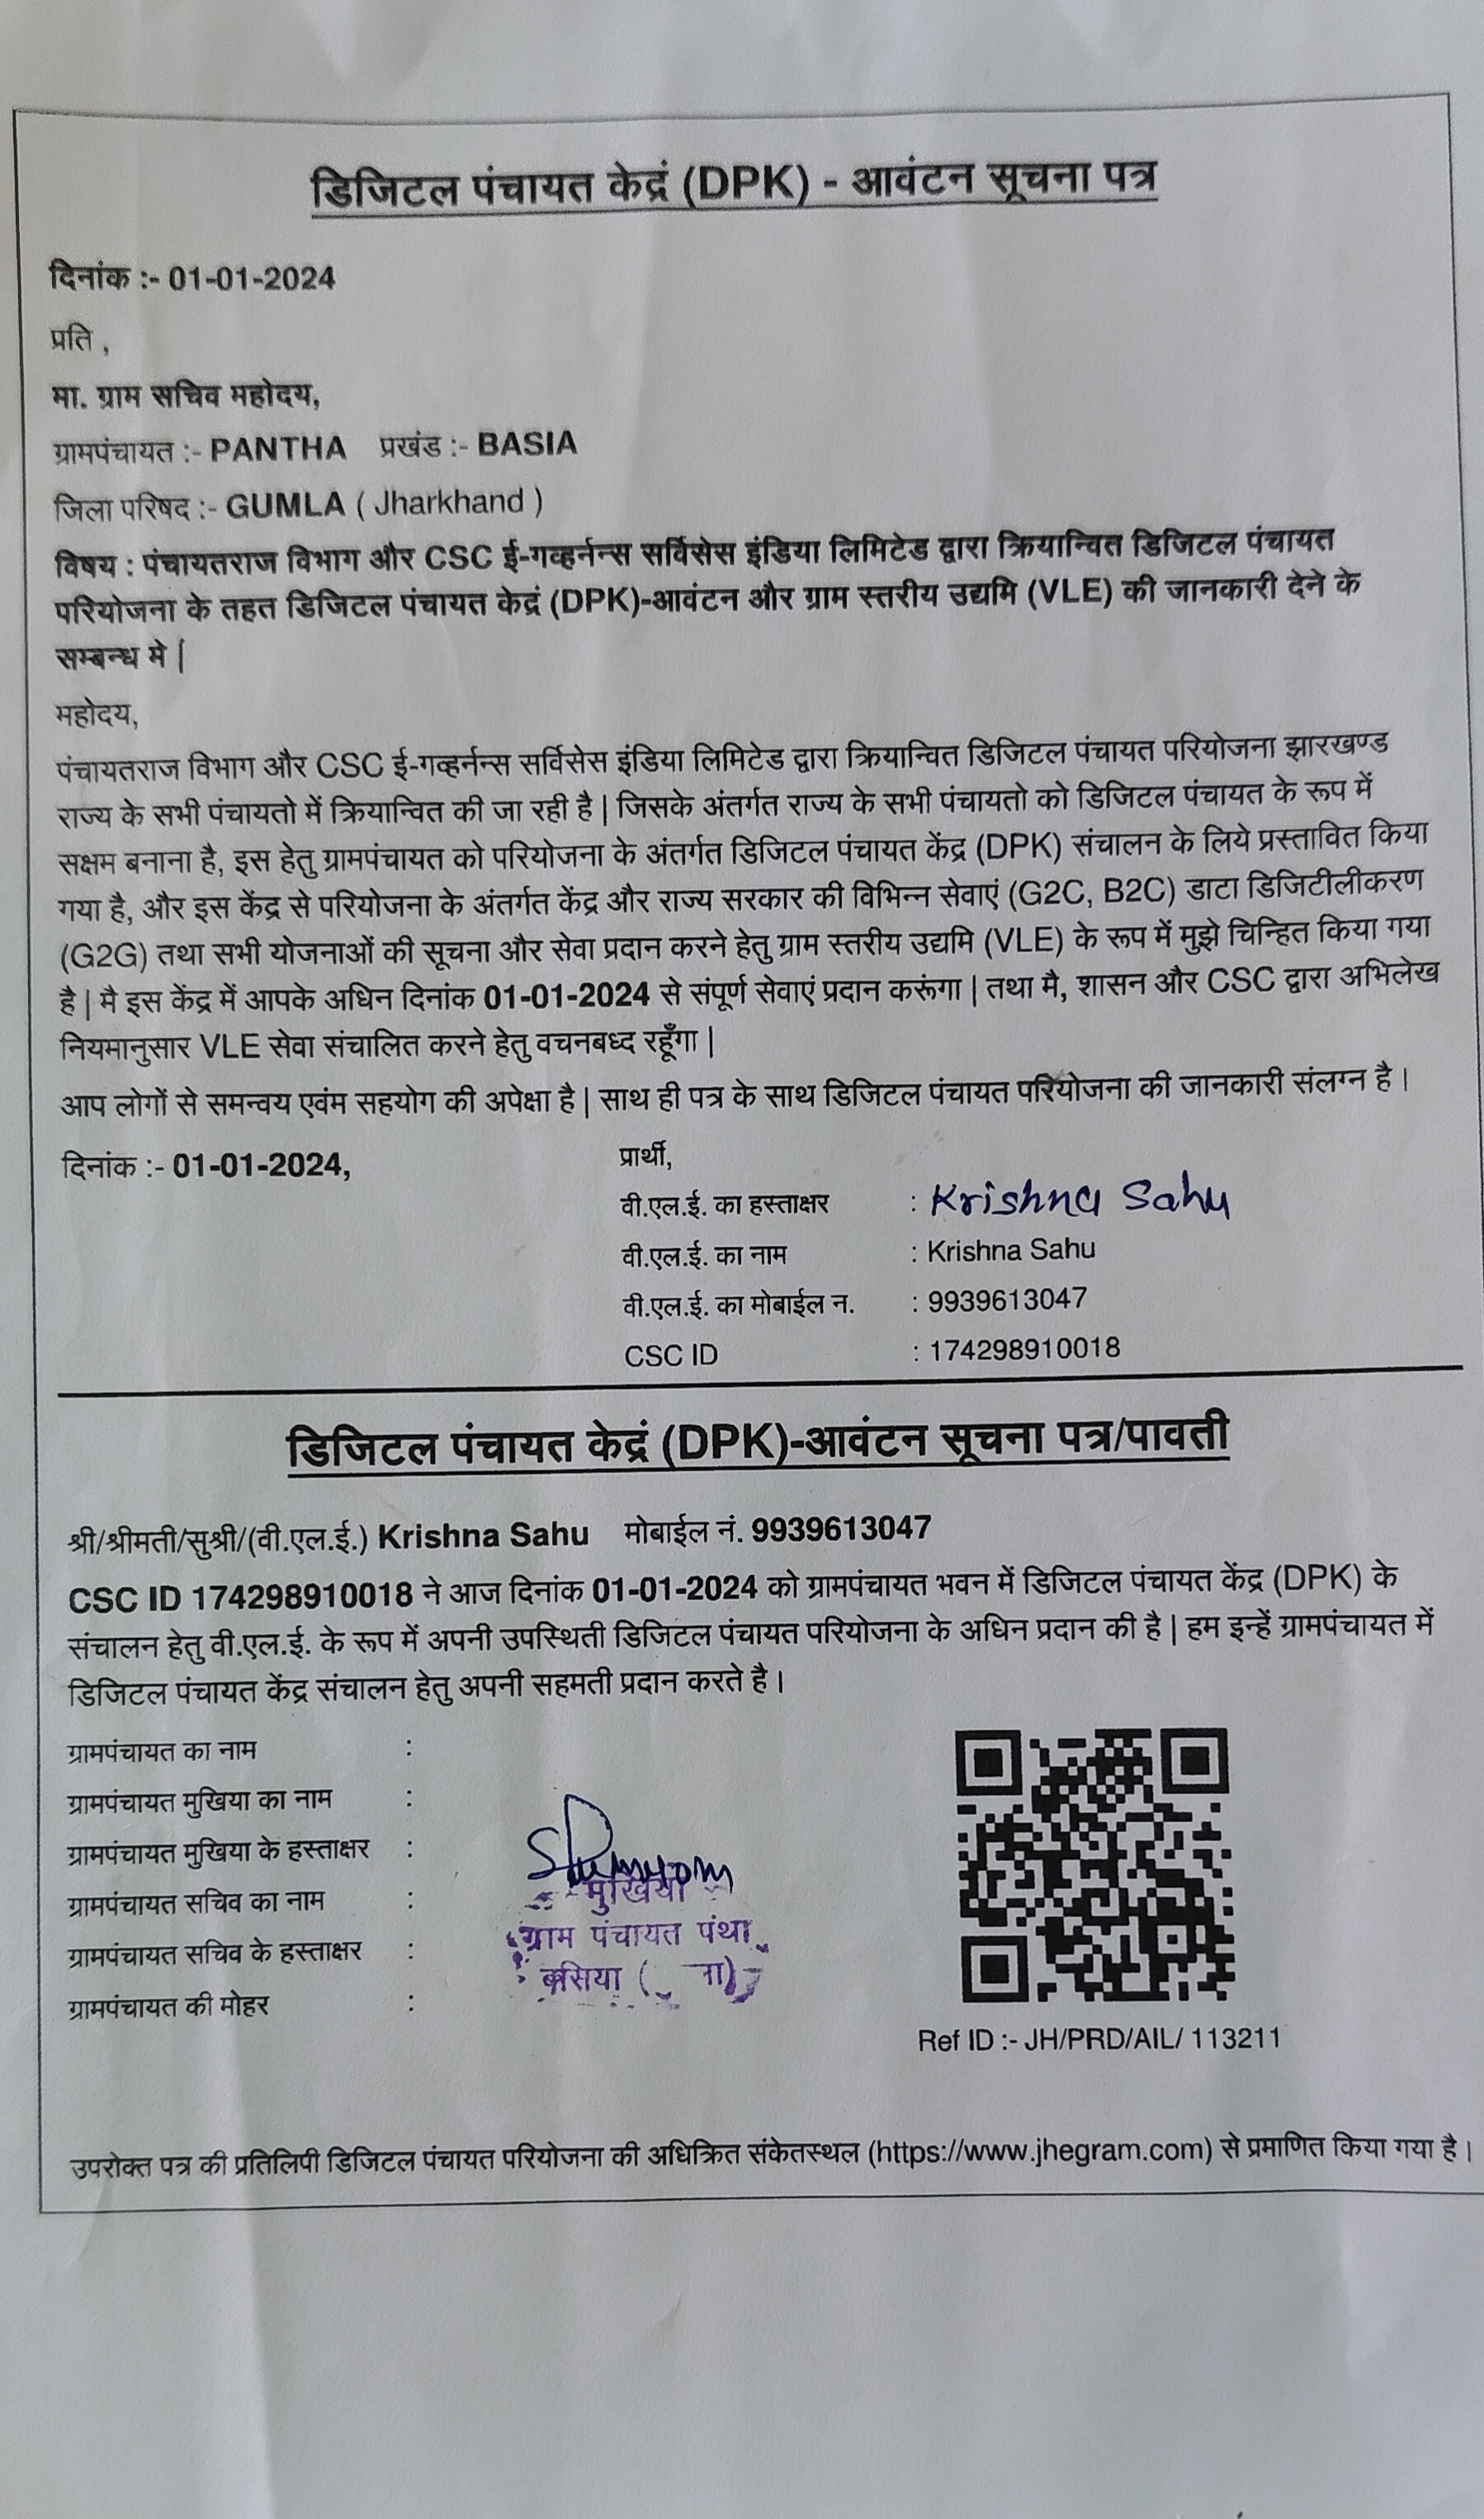 डिजिटल पंचायत केद्रं (DPK) - आवंटन सूचना पत्र
दिनांक :- 01-01-2024
प्रति ,
मा. ग्राम सचिव महोदय,
ग्रामपंचायत :- PANTHA प्रखंड :- BASIA
जिला परिषद :- GUMLA ( Jharkhand )
विषय : पंचायतराज विभाग और CSC ई-गव्हर्नन्स सर्विसेस इंडिया लिमिटेड द्वारा क्रियान्वित डिजिटल पंचायत
परियोजना के तहत डिजिटल पंचायत केद्रं (DPK)-आवंटन और ग्राम स्तरीय उद्यमि (VLE) की जानकारी देने के
सम्बन्ध मे |
महोदय,
पंचायतराज विभाग और CSC ई-गव्हर्नन्स सर्विसेस इंडिया लिमिटेड द्वारा क्रियान्वित डिजिटल पंचायत परियोजना झारखण्ड
राज्य के सभी पंचायतो में क्रियान्वित की जा रही है | जिसके अंतर्गत राज्य के सभी पंचायतो को डिजिटल पंचायत के रूप में
सक्षम बनाना है, इस हेतु ग्रामपंचायत को परियोजना के अंतर्गत डिजिटल पंचायत केंद्र (DPK) संचालन के लिये प्रस्तावित किया
गया है, और इस केंद्र से परियोजना के अंतर्गत केंद्र और राज्य सरकार की विभिन्न सेवाएं (G2C, B2C) डाटा डिजिटीलीकरण
(G2G) तथा सभी योजनाओं की सूचना और सेवा प्रदान करने हेतु ग्राम स्तरीय उद्यमि (VLE) के रूप में मुझे चिन्हित किया गया
है | मै इस केंद्र में आपके अधिन दिनांक 01-01-2024 से संपूर्ण सेवाएं प्रदान करूंगा | तथा मै, शासन और CSC द्वारा अभिलेख
नियमानुसार VLE सेवा संचालित करने हेतु वचनबध्द रहूँगा |
आप लोगों से समन्वय एवंम सहयोग की अपेक्षा है | साथ ही पत्र के साथ डिजिटल पंचायत परियोजना की जानकारी संलग्न है |
दिनांक :- 01-01-2024,
प्रार्थी,
वी.एल.ई. का हस्ताक्षर : Krishna Sahu
वी.एल.ई. का नाम : Krishna Sahu
वी.एल.ई. का मोबाईल न. : 9939613047
CSC ID : 174298910018
डिजिटल पंचायत केद्रं (DPK)-आवंटन सूचना पत्र/पावती
श्री/श्रीमती/सुश्री/(वी.एल.ई.) Krishna Sahu मोबाईल नं. 9939613047
CSC ID 174298910018 ने आज दिनांक 01-01-2024 को ग्रामपंचायत भवन में डिजिटल पंचायत केंद्र (DPK) के
संचालन हेतु वी.एल.ई. के रूप में अपनी उपस्थिती डिजिटल पंचायत परियोजना के अधिन प्रदान की है | हम इन्हें ग्रामपंचायत में
डिजिटल पंचायत केंद्र संचालन हेतु अपनी सहमती प्रदान करते है |
ग्रामपंचायत का नाम :
ग्रामपंचायत मुखिया का नाम :
ग्रामपंचायत मुखिया के हस्ताक्षर :
ग्रामपंचायत सचिव का नाम :
ग्रामपंचायत सचिव के हस्ताक्षर :
ग्रामपंचायत की मोहर :
मुखिया
ग्राम पंचायत पंथा
बसिया
Ref ID :- JH/PRD/AIL/ 113211
उपरोक्त पत्र की प्रतिलिपी डिजिटल पंचायत परियोजना की अधिक्रित संकेतस्थल (https://www.jhegram.com) से प्रमाणित किया गया है |